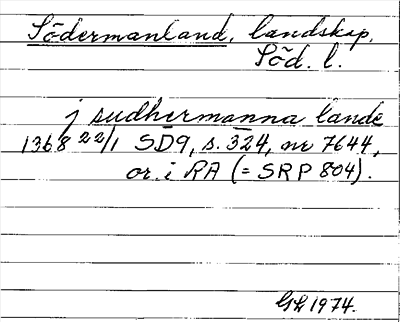 Södermanland, landskap.
Söd. l.
j sudhermanna lande
1368 22/1 SD9, s. 324, nr 7644,
or. i RA (= SRP 804).
GL 1974.